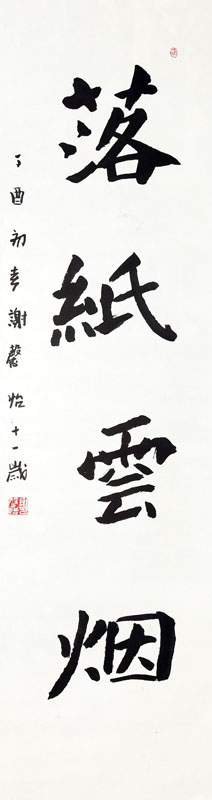 落紙雲烟
丁酉初春謝馨怡十一歲